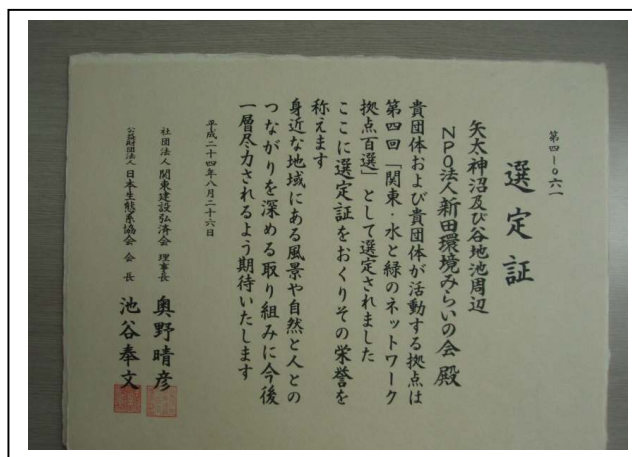 第四-〇六一
選定証
矢太神沼及び谷地池周辺
NPO法人新田環境みらいの会 殿
貴団体および貴団体が活動する拠点は
第四回「関東・水と緑のネットワーク
拠点百選」として選定されました
ここに選定証をおくりその栄誉を
称えます
身近な地域にある風景や自然と人との
つながりを深める取り組みに今後
一層尽力されるよう期待いたします
平成二十四年八月二十六日
社団法人 関東建設弘済会 理事長 奥野晴彦
公益財団法人 日本生態系協会 会長 池谷奉文